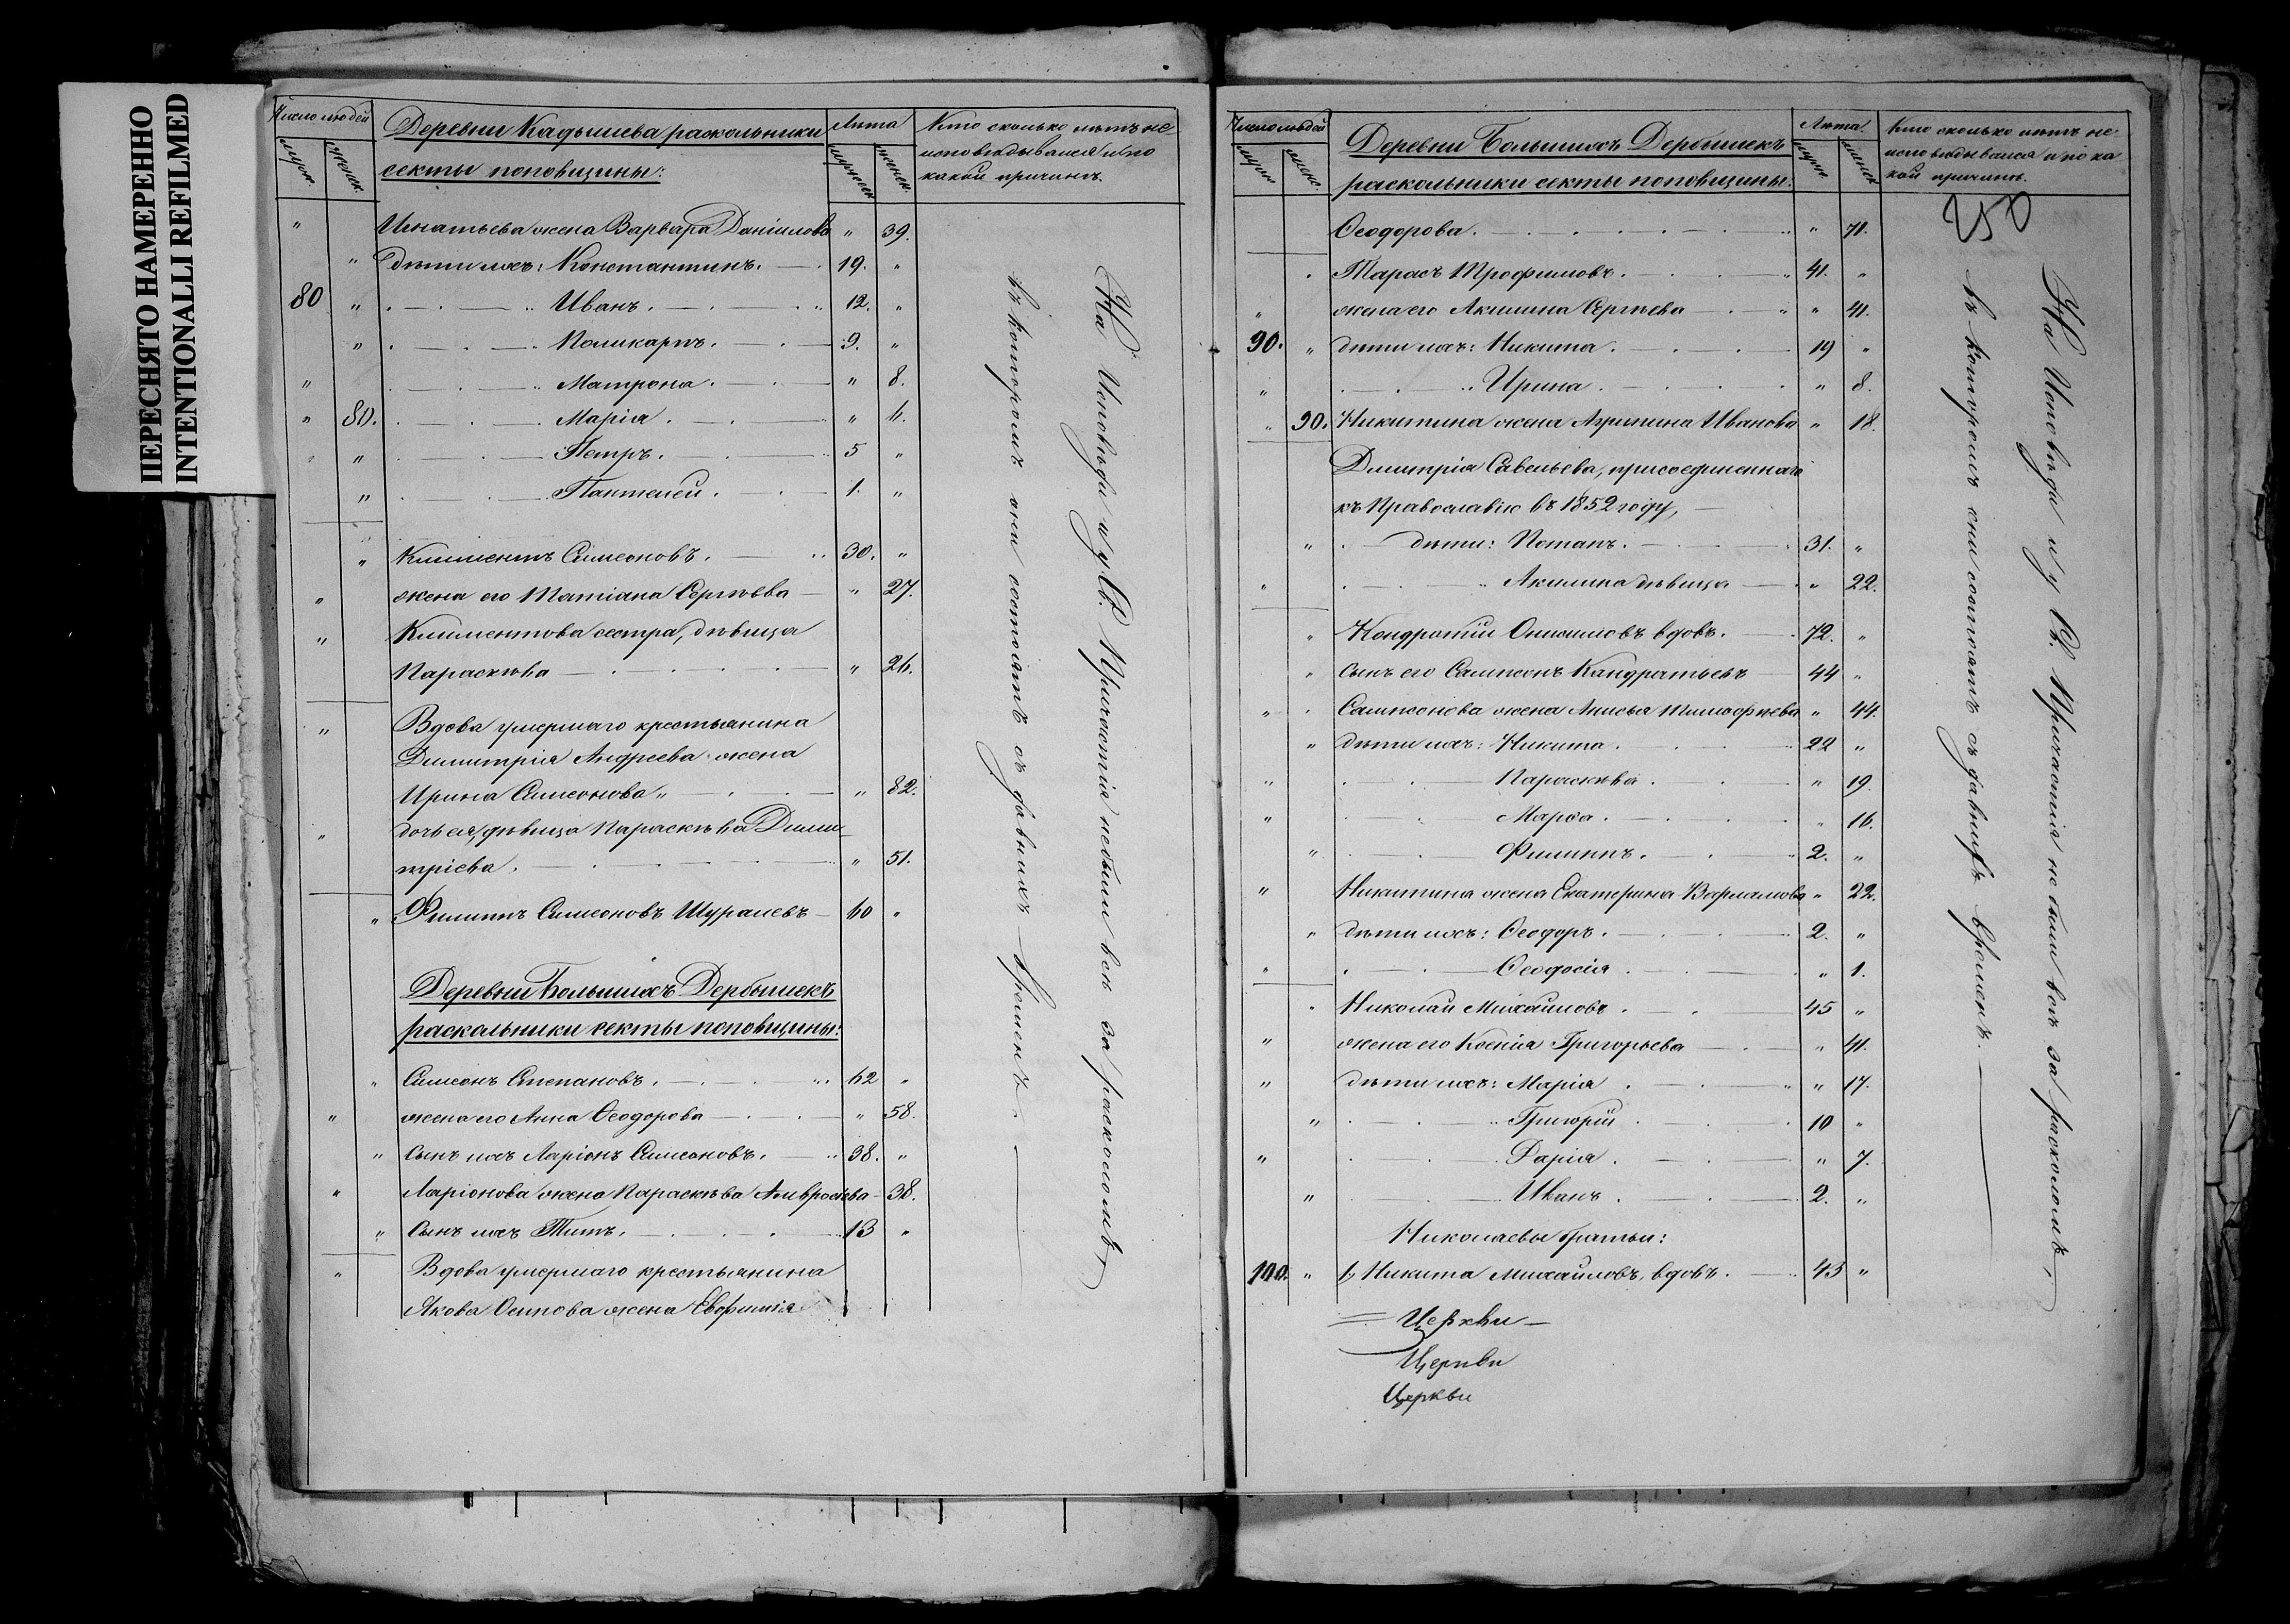 ПЕРЕСНЯТО НАМЕРЕННО
INTENTIONALLI REFILMED
Число людей
мужск.
женск.
Деревни Кадышева раскольники
секты поповщины:
Лѣта
мужеск.
женск.
Кто сколько лѣтъ не
исповѣдывался и по
какой причинѣ.
" Игнатьева жена Варвара Данiилова " 39.
" дѣти ихъ: Константинъ. 19. "
80 " Иванъ. 12. "
" Поликарпъ. 9. "
" Матрона. " 8.
" 80. Марiя. " 6.
" " Петръ. 5 "
" Пантелей. 1. "
" Климентъ Симеоновъ. 30. "
" жена его Татiана Сергѣева " 27.
" Климентова сестра, дѣвица
Параскѣва " 26.
" Вдова умершаго крестьянина
Димитрiя Андреева жена
Ирина Симеонова " " 82.
" дочь ея, дѣвица Параскѣва Дими
трiева. " 51.
" Филиппъ Симеоновъ Шуралевъ 60 "
Деревни Большихъ Дербышекъ
раскольники секты поповщины:
" Симеонъ Степановъ. 62 "
" жена его Анна Ѳеодорова " 58.
" Сынъ ихъ Ларiонъ Симеоновъ. 38. "
" Ларiонова жена Параскѣва Амвросiева 38.
" Сынъ ихъ Титъ. 13 "
" Вдова умершаго крестьянина
Якова Осипова жена Евфимiя
На Исповѣди и у Св. Причастiя небыли всѣ за расколомъ,
въ которомъ они состоятъ съ давнихъ временъ.
Число людей
мужск.
женск.
Деревни Большихъ Дербышекъ
раскольники секты поповщины:
Лѣта.
мужск.
женск.
Кто сколько лѣтъ не
исповѣдывался и по ка
кой причинѣ.
250
Ѳеодорова. " 71.
" Тарасъ Трофимовъ. 41. "
" жена его Акилина Сергѣева " 41.
90. " дѣти ихъ: Никита. 19 "
" Ирина. " 8.
" 90. Никитина жена Агрипина Иванова " 18.
Димитрiя Савельева, присоединеннаго
къ Православiю въ 1852 году,
" дѣти: Потапъ. 31. "
" Акилина дѣвица " 22.
" Кондратiй Онисимовъ вдовъ. 72. "
" Сынъ его Сампсонъ Кандратьевъ 44 "
" Сампсонова жена Анисья Тимофѣева " 44.
" дѣти ихъ: Никита. 22 "
" Параскѣва. " 19.
" Марѳа. " 16.
" Филиппъ. 2. "
" Никитина жена Екатерина Варламова " 22.
" дѣти ихъ: Ѳеодоръ. 2. "
" Ѳеодосiя. " 1.
" Николай Михайловъ. 45 "
" жена его Ксенiя Григорьева " 41.
" дѣти ихъ: Марiя. " 17.
" Григорiй. 10 "
" Дарiя. " 7.
" Иванъ. 2. "
Николаевы братьи:
100. " 1, Никита Михайловъ, вдовъ. 43 "
Церкви
Церкви
Церкви
На Исповѣди и у Св. Причастiя не были всѣ за расколомъ,
въ которомъ они состоятъ съ давнихъ временъ.